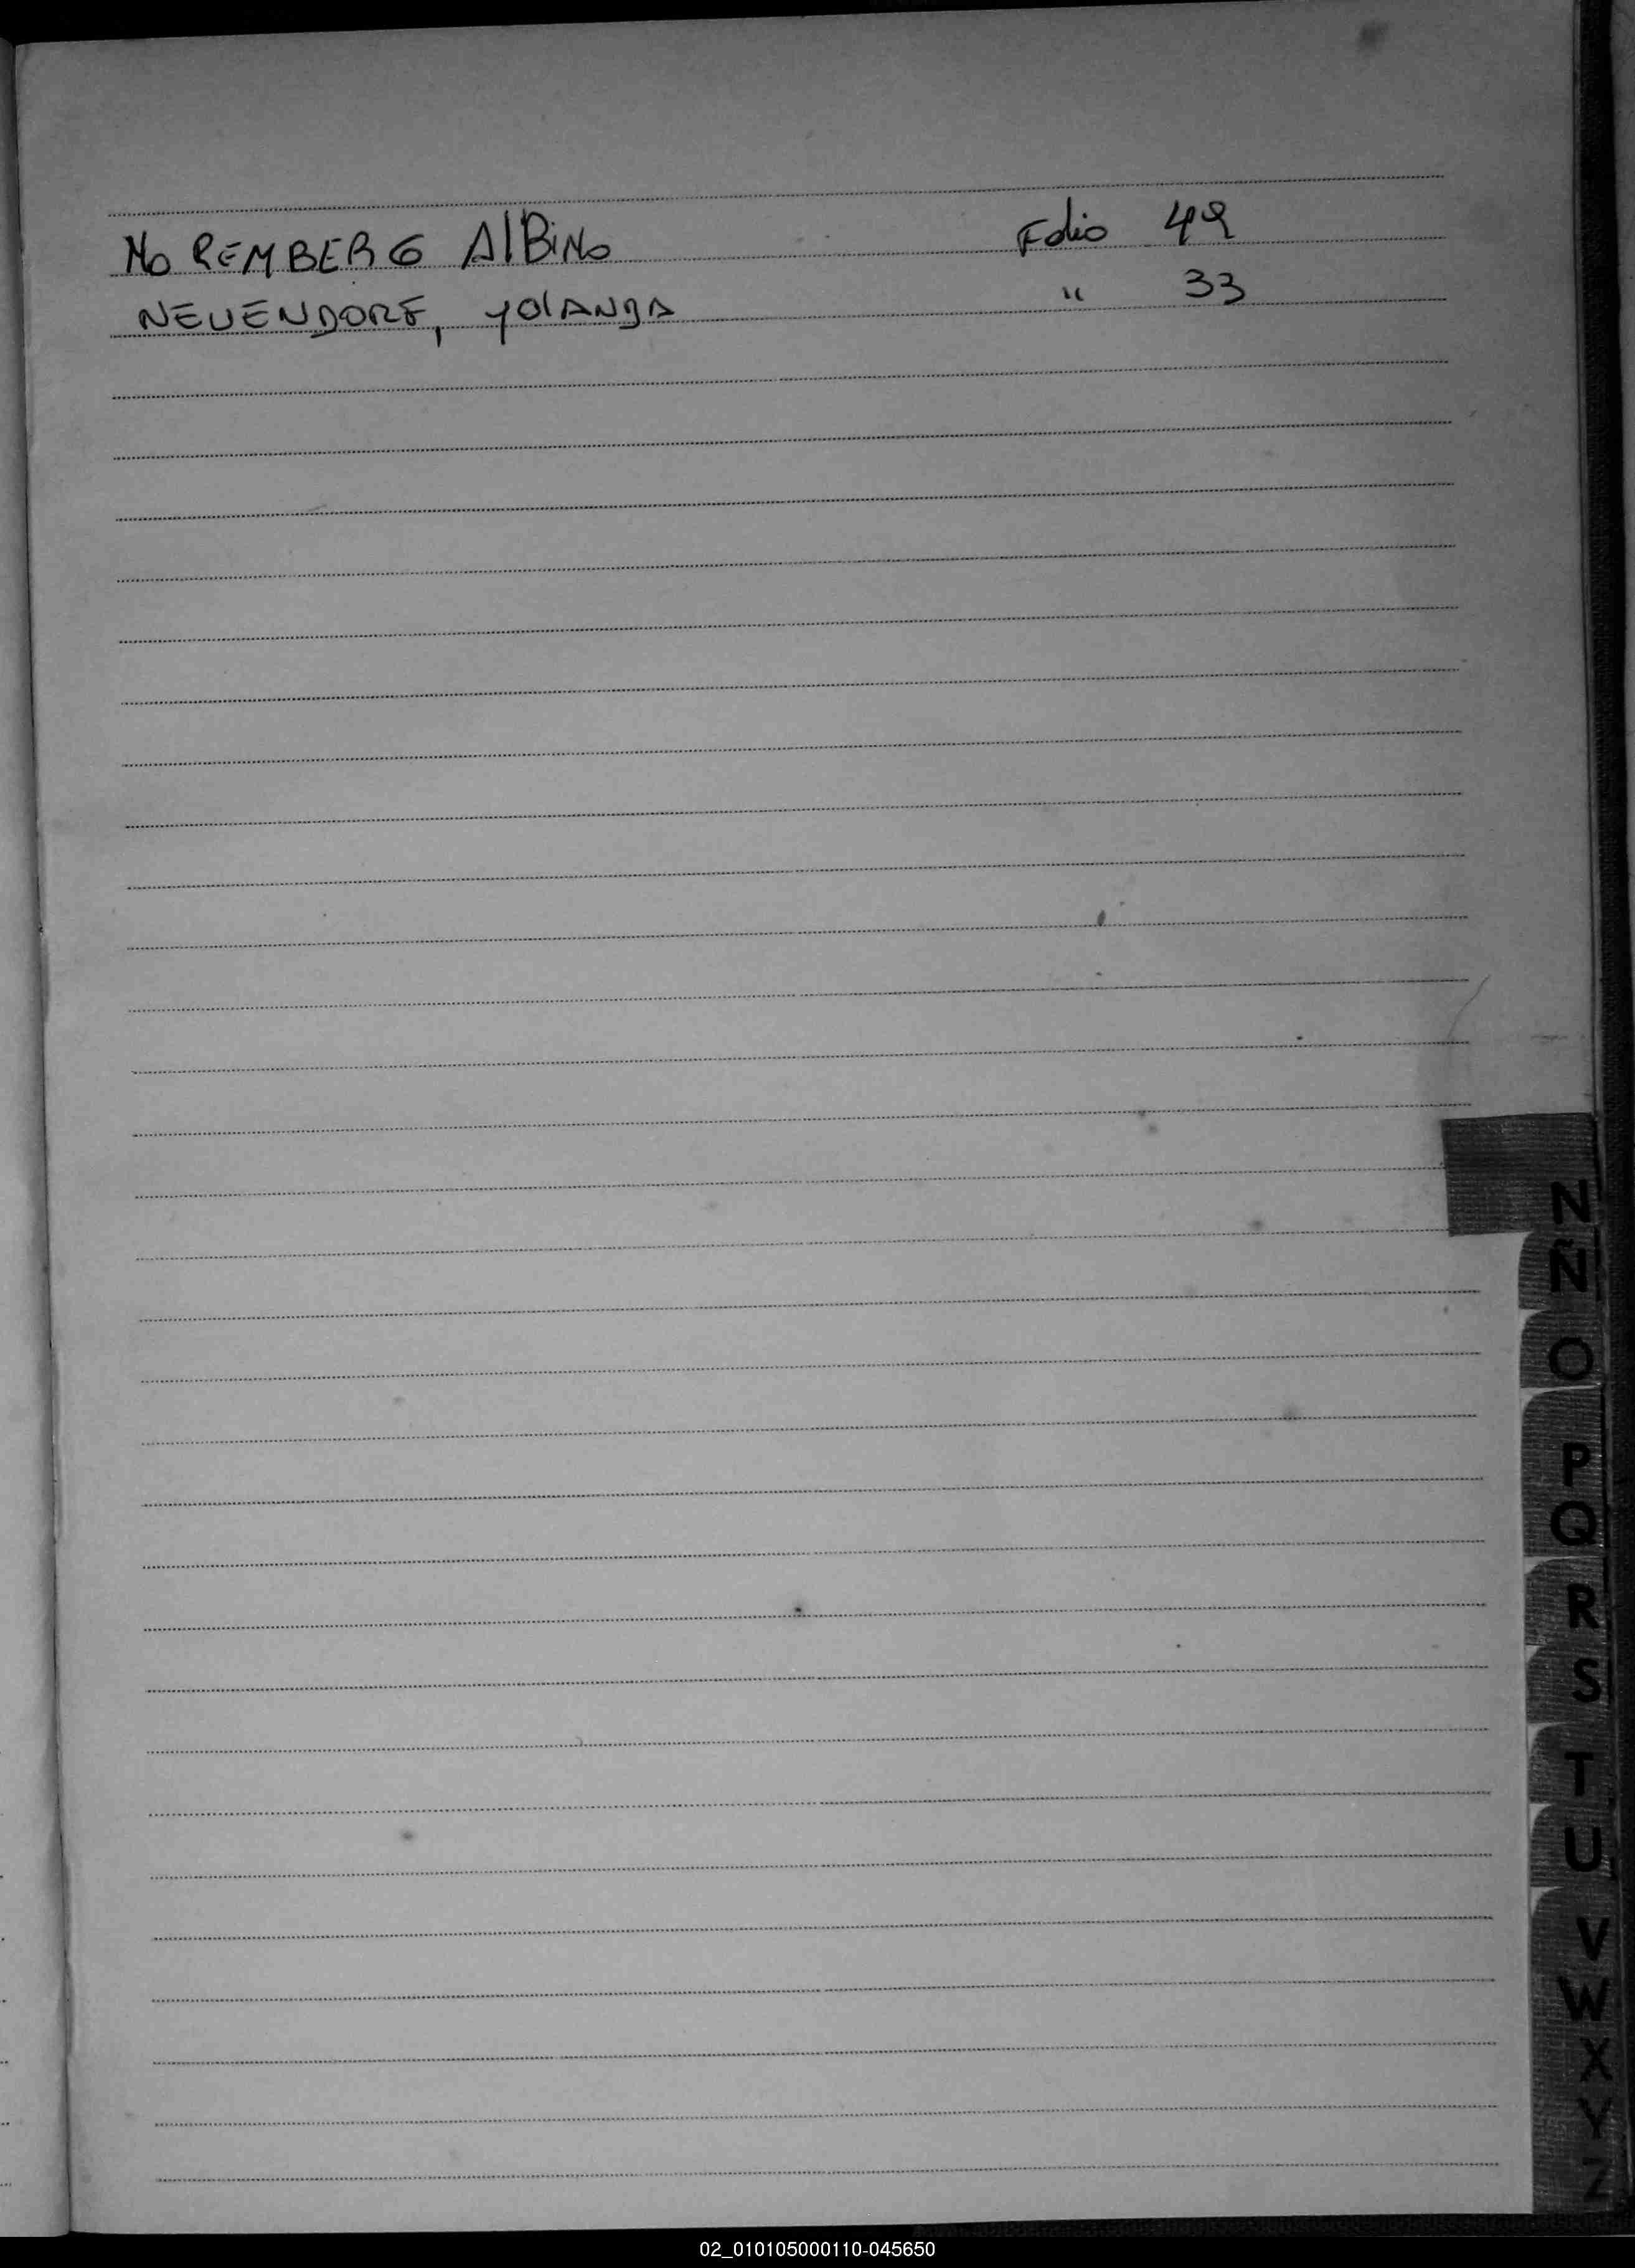 NoREMBERG AlBiNo Folio 49
NEUENDORF, yolANDA " 33
N
Ñ
O
P
Q
R
S
T
U
V
W
X
Y
Z
02_010105000110-045650